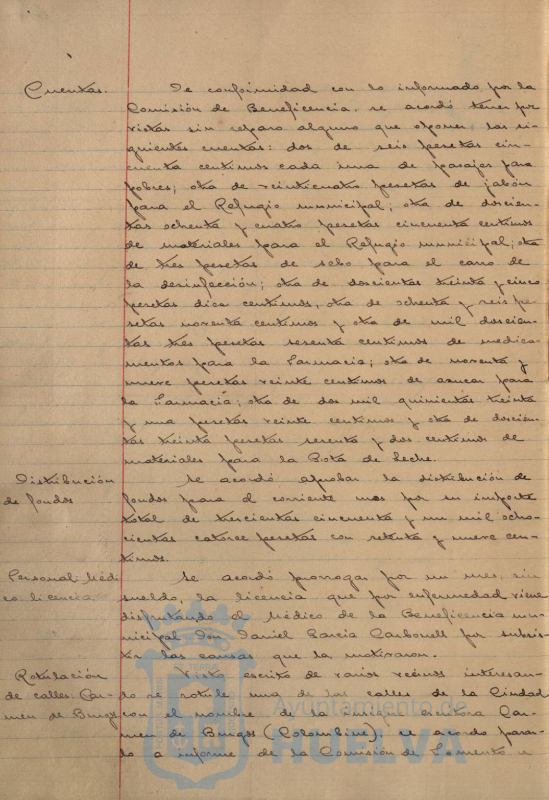 Cuentas.
De conformidad con lo informado por la
Comisión de Beneficencia, se acordó tener por
vistas sin reparo alguno que oponer, las si-
guientes cuentas: dos de seis pesetas cin-
cuenta centimos cada una de pasajes para
pobres; otra de veinticuatro pesetas de jabón
para el Refugio municipal; otra de doscien-
tas ochenta y cuatro pesetas cincuenta centimos
de materiales para el Refugio municipal; otra
de tres pesetas de sebo para el carro de
la desinfección; otra de doscientas treinta y cinco
pesetas diez centimos, otra de ochenta y seis pe-
setas noventa centimos y otra de mil doscien-
tas tres pesetas sesenta centimos de medica-
mentos para la Farmacia; otra de noventa y
nueve pesetas veinte centimos de azucar para
la Farmacia; otra de dos mil quinientas treinta
y una pesetas veinte centimos y otra de doscien-
tas treinta pesetas setenta y dos centimos de
materiales para la Gota de Leche.
Distribución
de fondos
Se acordó aprobar la distribución de
fondos para el corriente mes por su importe
total de trescientas cincuenta y un mil ocho-
cientas catorce pesetas con setenta y nueve cen-
timos.
Personal Médi
co licencia
Se acordó prorrogar por un mes, sin
sueldo, la licencia que por enfermedad viene
disfrutando el Médico de la Beneficencia mu-
nicipal Don Daniel Garcia Carbonell por subsis-
tir las causas que la motivaron.
Rotulación
de calles Car-
men de Burgos
Visto escrito de varios vecinos interesan-
do se rotule una de las calles de la Ciudad
con el nombre de la insigne escritora Car-
men de Burgos (Colombine), se acordó pasar-
lo a informe de la Comisión de Fomento e
Ayuntamiento de
HUELVA